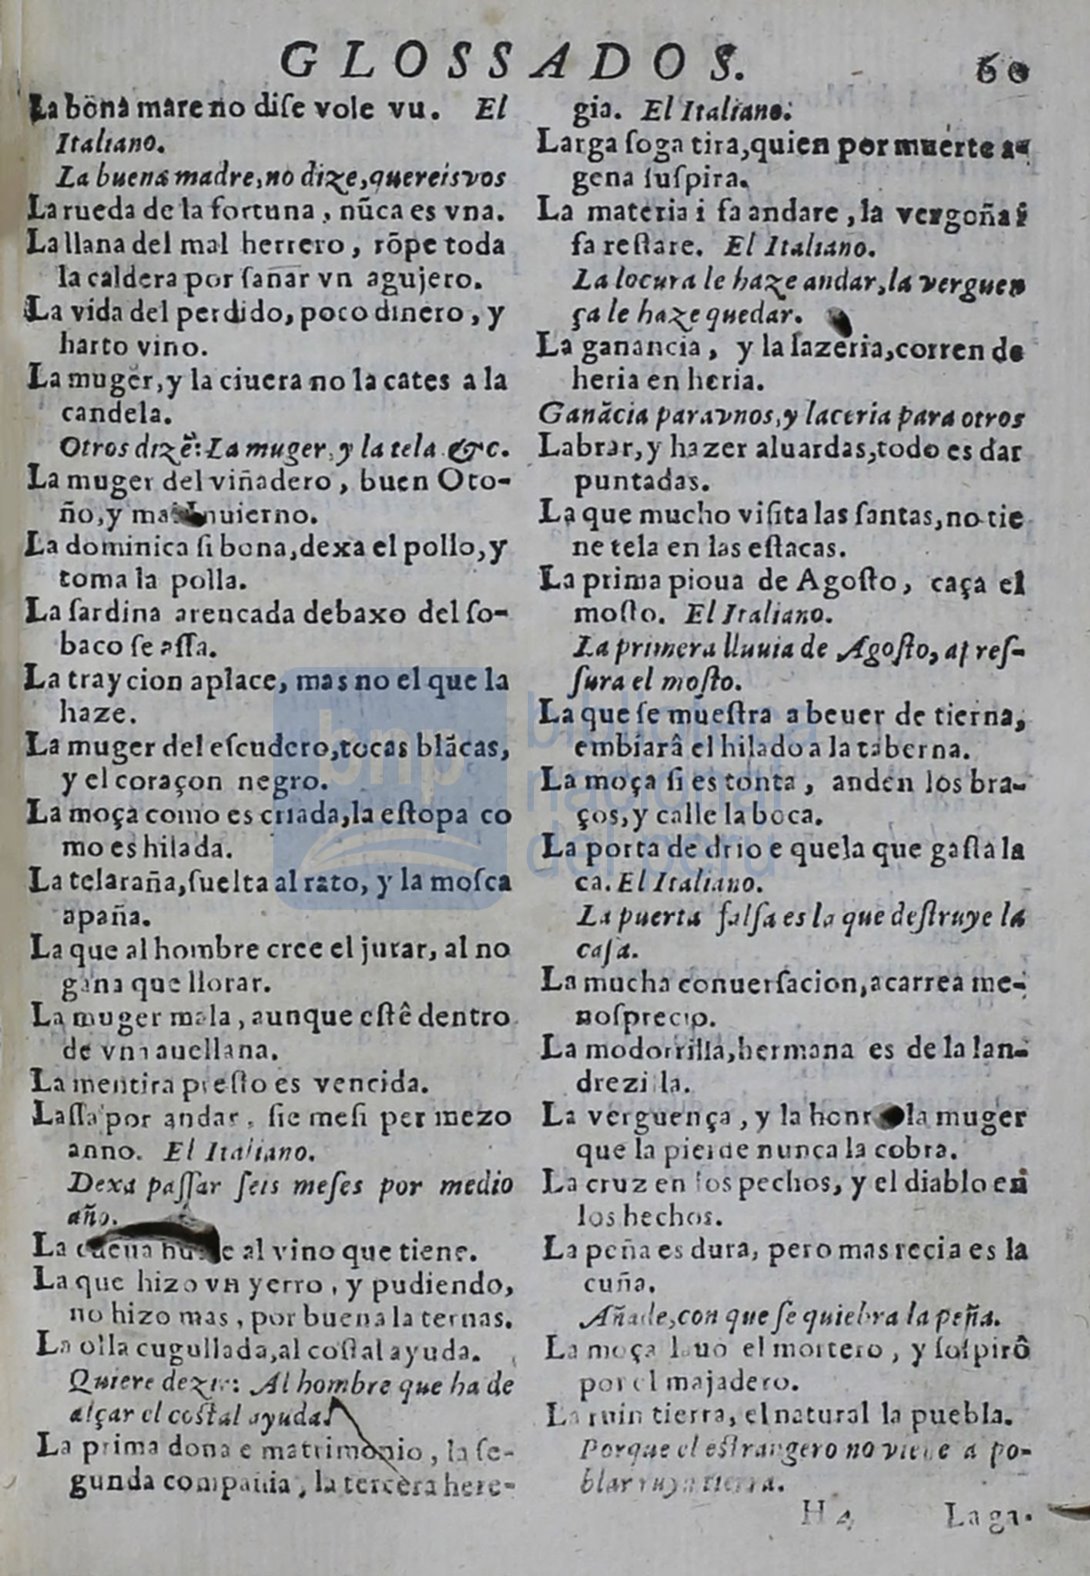 GLOSSADOS. 60
La bõna mare no dise vole vu. El
Italiano.
La buena madre, no dize, quereis vos
La rueda de la fortuna, nũca es vna.
La llana del mal herrero, rõpe toda
la caldera por sañar vn agujero.
La vida del perdido, poco dinero, y
harto vino.
La muger, y la ciuera no la cates a la
candela.
Otros dizẽ: La muger, y la tela &c.
La muger del viñadero, buen Oto-
ño, y mal inuierno.
La dominica si bona, dexa el pollo, y
toma la polla.
La sardina arencada debaxo del so-
baco se assa.
La traycion aplace, mas no el que la
haze.
La muger del escudero, tocas blãcas,
y el coraçon negro.
La moça como es criada, la estopa co
mo es hilada.
La telaraña, suelta al rato, y la mosca
apaña.
La que al hombre cree el jurar, al no
gana que llorar.
La muger mala, aunque estê dentro
de vna auellana.
La mentira presto es vencida.
Lassa por andar, sie mesi per mezo
anno. El Italiano.
Dexa passar seis meses por medio
año.
La al vino que tiene.
La que hizo vn yerro, y pudiendo,
no hizo mas, por buena la ternas.
La olla cugullada, al costal ayuda.
Quiere dezir: Al hombre que ha de
alçar el costal ayuda.
La prima dona e matrimonio, la se-
gunda compañia, la tercera here-
gia. El Italiano.
Larga soga tira, quien por muerte a-
gena suspira.
La materia i fa andare, la vergoña i
fa restare. El Italiano.
La locura le haze andar, la verguen
ça le haze quedar.
La ganancia, y la lazeria, corren de
heria en heria.
Ganãcia para vnos, y laceria para otros
Labrar, y hazer aluardas, todo es dar
puntadas.
La que mucho visita las santas, no tie
ne tela en las estacas.
La prima pioua de Agosto, caça el
mosto. El Italiano.
La primera lluuia de Agosto, apres-
sura el mosto.
La que se muestra a beuer de tierna,
embiarâ el hilado a la taberna.
La moça si es tonta, anden los bra-
ços, y calle la boca.
La porta de drio e quela que gasta la
ca. El Italiano.
La puerta falsa es la que destruye la
casa.
La mucha conuersacion, acarrea me-
nosprecio.
La modorrilla, hermana es de la lan-
drezilla.
La verguença, y la honra la muger
que la pierde nunca la cobra.
La cruz en los pechos, y el diablo en
los hechos.
La peña es dura, pero mas recia es la
cuña.
Añade, con que se quiebra la peña.
La moça lauo el mortero, y sospirô
por el majadero.
La ruin tierra, el natural la puebla.
Porque el estrangero no viene a po-
blar ruyn tierra.
H 4 La ga-
bnp biblioteca
nacional
del perú